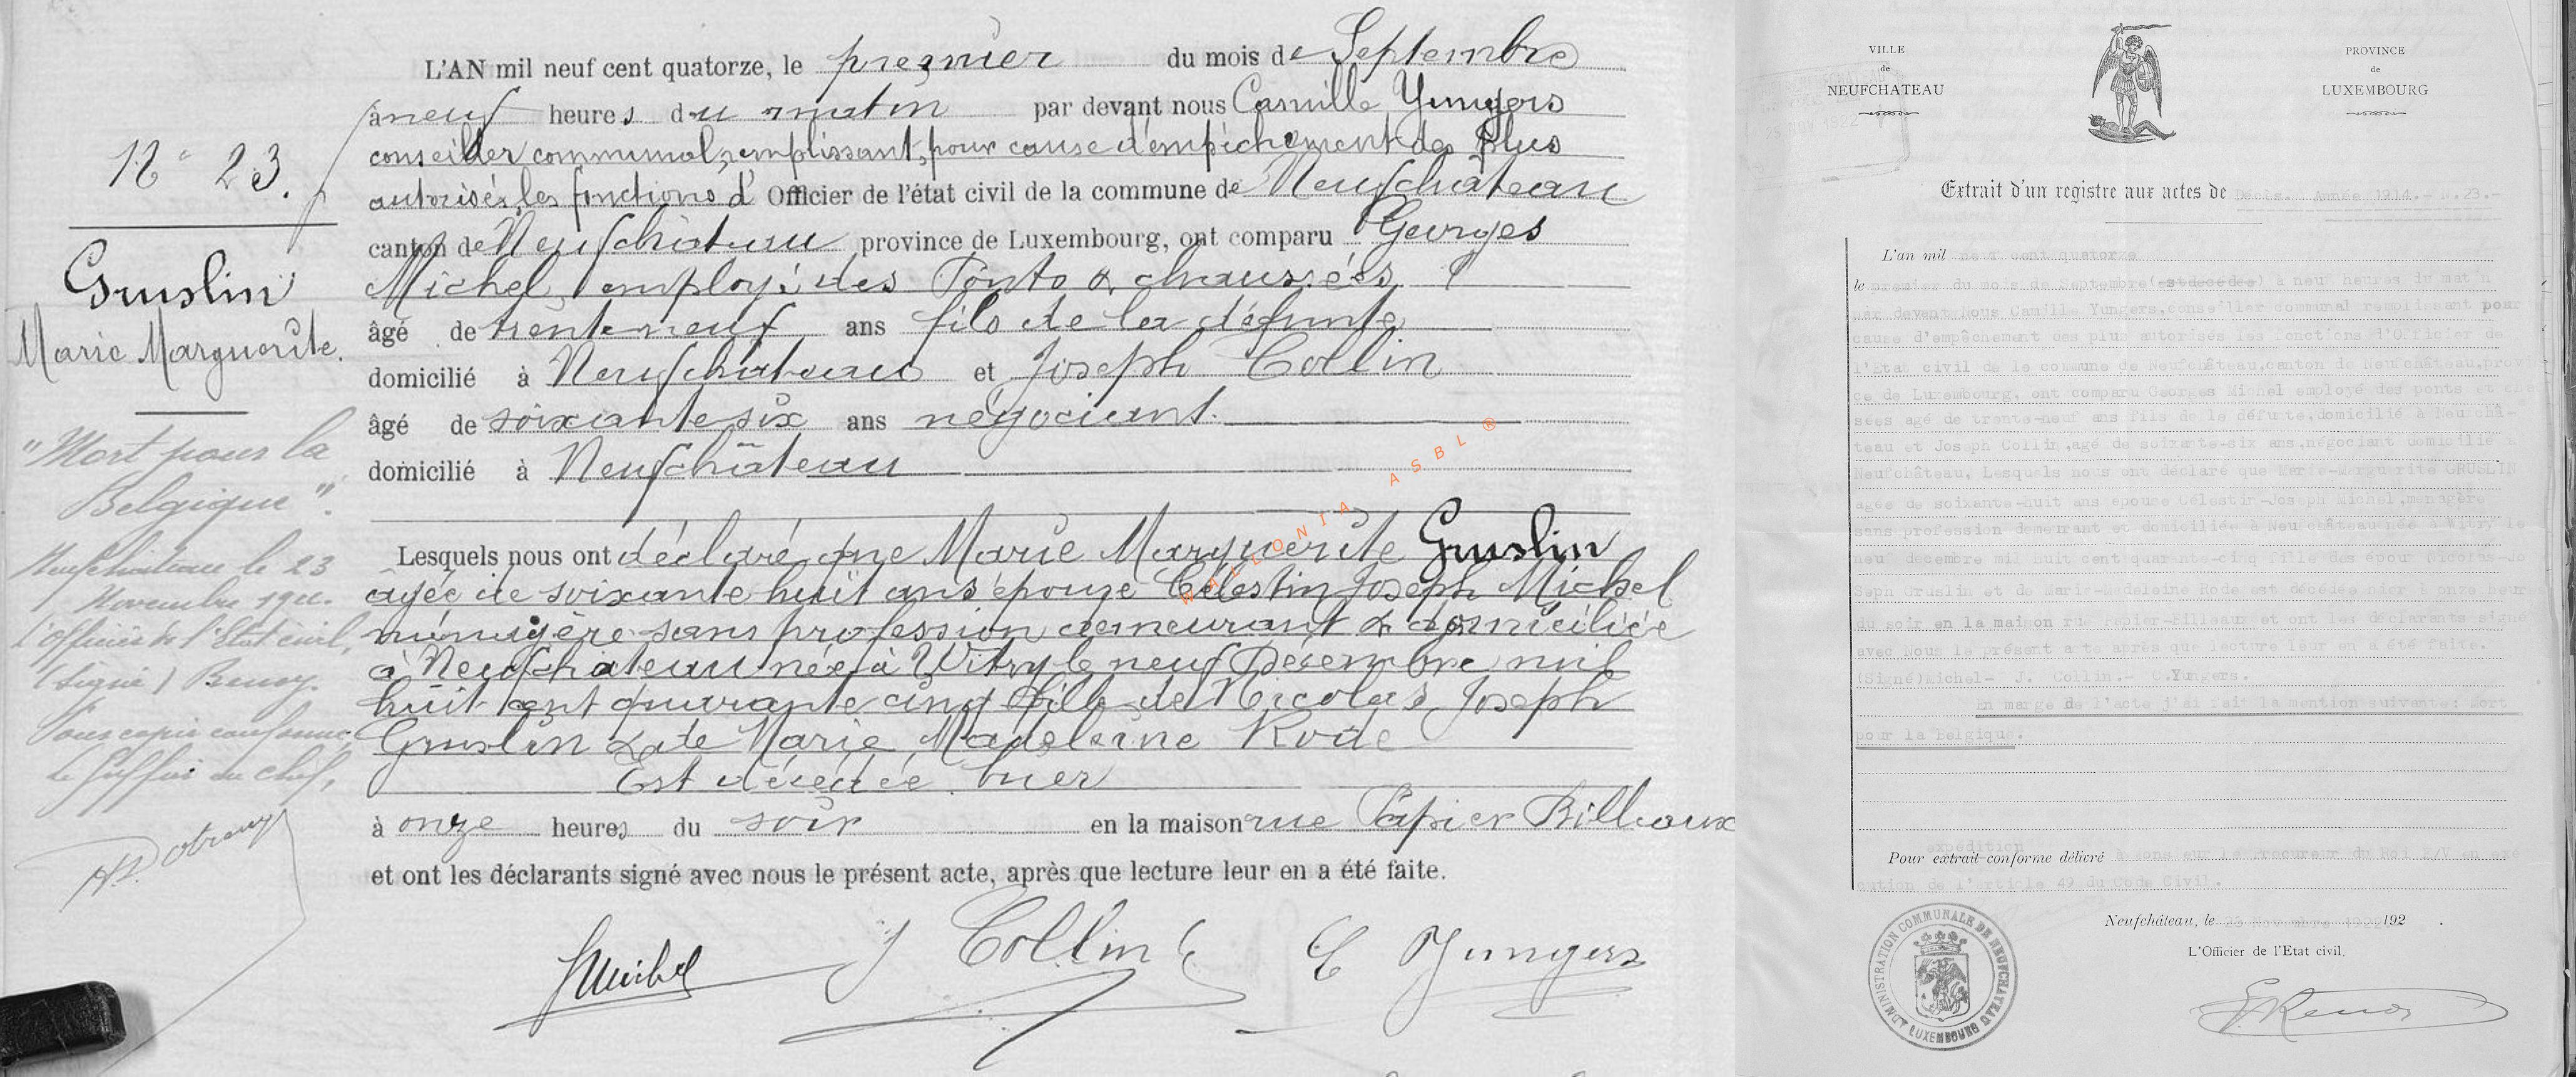 N° 23.
Gruslin
Marie Marguerite.
"Mort pour la
Belgique".
Neufchâteau le 23
Novembre 1922.
L'officier de l'Etat civil,
(signé)
Pour copie conforme,
Le Greffier en chef,
L'AN mil neuf cent quatorze, le premier du mois de Septembre
à neuf heures du matin par devant nous Camille Yungers
conseiller communal, remplissant, pour cause d'empêchement des plus
autorisés, les fonctions d' Officier de l'état civil de la commune de Neufchâteau
canton de Neufchâteau province de Luxembourg, ont comparu Georges
Michel, employé des Ponts & chaussées
âgé de trente neuf ans fils de la défunte
domicilié à Neufchâteau et Joseph Collin
âgé de soixante six ans négociant.
domicilié à Neufchâteau
Lesquels nous ont déclaré que Marie Marguerite Gruslin
agée de soixante huit ans épouse Célestin Joseph Michel
ménagère sans profession demeurant & domiciliée
à Neufchateau née à Witry le neuf Décembre mil
huit cent quarante cinq fille de Nicolas Joseph
Gruslin & de Marie Madeleine Rode
Est décédée hier
à onze heures du soir en la maison rue Papier Billiaux
et ont les déclarants signé avec nous le présent acte, après que lecture leur en a été faite.
GMichel J Collin C Yungers
WALLONIA ASBL ®
VILLE
de
NEUFCHATEAU
PROVINCE
de
LUXEMBOURG
Extrait d'un registre aux actes de Décès. Année 1914.- N.23.-
L'an mil neuf cent quatorze
le premier du mois de Septembre (est décédé) à neuf heures du matin
par devant Nous Camille Yungers, conseiller communal remplissant pour
cause d'empêchement des plus autorisés les fonctions d'Officier de
l'Etat civil de la commune de Neufchâteau, canton de Neufchâteau, pro
ce de Luxembourg, ont comparu Georges Michel employé des ponts et
sées agé de trente-neuf ans fils de la défunte, domicilié à Neufchâ
teau et Joseph Collin, agé de soixante-six ans, négociant domicilié à
Neufchâteau. Lesquels nous ont déclaré que Marie-Marguerite GRUSLIN
agée de soixante-huit ans épouse Célestin-Joseph Michel, ménagère
sans profession demeurant et domiciliée à Neufchâteau née à Witry le
neuf décembre mil huit cent quarante-cinq fille des époux Nicolas-Jo
seph Gruslin et de Marie-Madeleine Rode est décédée onze heur
du soir en la maison rue Papier Billiaux et ont les déclarants signé
avec Nous le présent acte après que lecture leur en a été faite.
(Signé) Michel- J. Collin.- C. Yungers.
En marge de l'acte j'ai fait la mention suivante: Mort
pour la Belgique.
expédition
Pour extrait conforme délivré à Monsieur le Procureur du Roi E/V en exé
cution de l'article 49 du Code Civil.
Neufchâteau, le 23 Novembre 1922 192 .
L'Officier de l'Etat civil,
ADMINISTRATION COMMUNALE DE NEUFCHATEAU
LUXEMBOURG